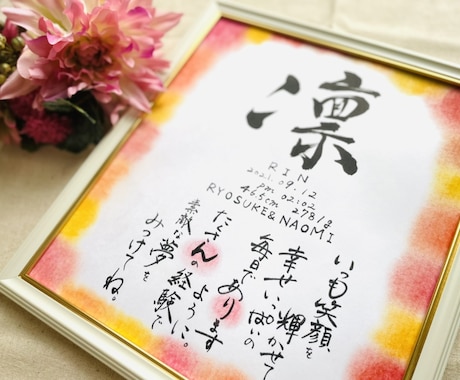 凛
RIN
2021.09.12
pm 02:02
46.5cm 2781g
RYOSUKE&NAOMI
いつも笑顔を
輝かせて
幸せいっぱいの
毎日で
あります
ように。
たくさんの経験で
素敵な夢を
みつけてね。